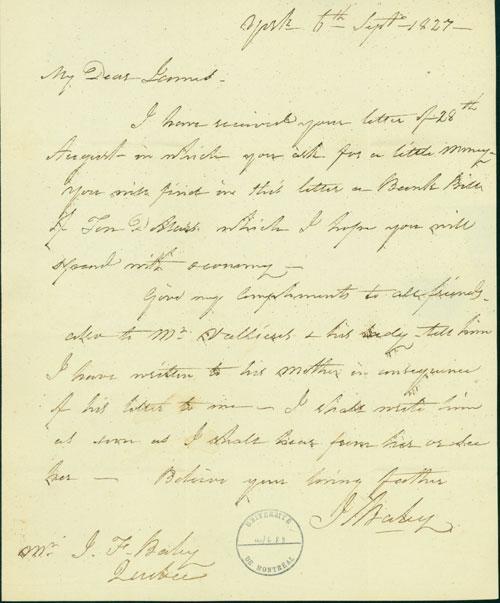 York 6th Septr 1827 —
My Dear James.
I have received your letter of 28th
August in which you ask for a little money
You will find in this letter a Bank Bill
of Ten Dollars which I hope you will
spend with economy —
Give my compliments to all friends.
also to Mr. Vallieres & his lady tell him
I have written to his Mother in consequence
of his letter to me — I shall write him
as soon as I shall hear from her or see
her — Believe your loving father
J. Baby
Mr. J. F. Baby
Quebec
UNIVERSITÉ
DE MONTRÉAL